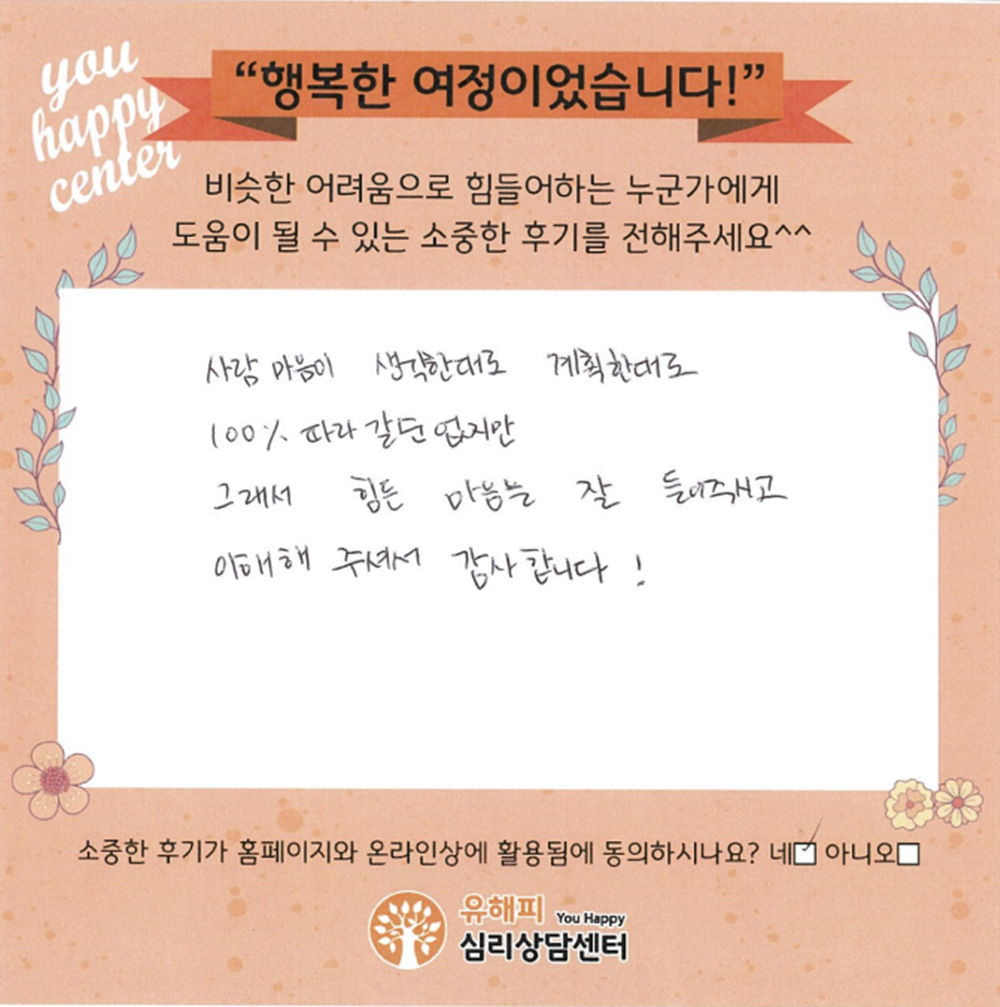 you
happy
center
“행복한 여정이었습니다!”
비슷한 어려움으로 힘들어하는 누군가에게
도움이 될 수 있는 소중한 후기를 전해주세요^^
사람 마음이 생각한대로 계획한대로
100% 따라 갈 순 없지만
그래서 힘든 마음을 잘 들어주시고
이해해 주셔서 감사합니다 !
소중한 후기가 홈페이지와 온라인상에 활용됨에 동의하시나요? 네 아니오
유해피 You Happy
심리상담센터